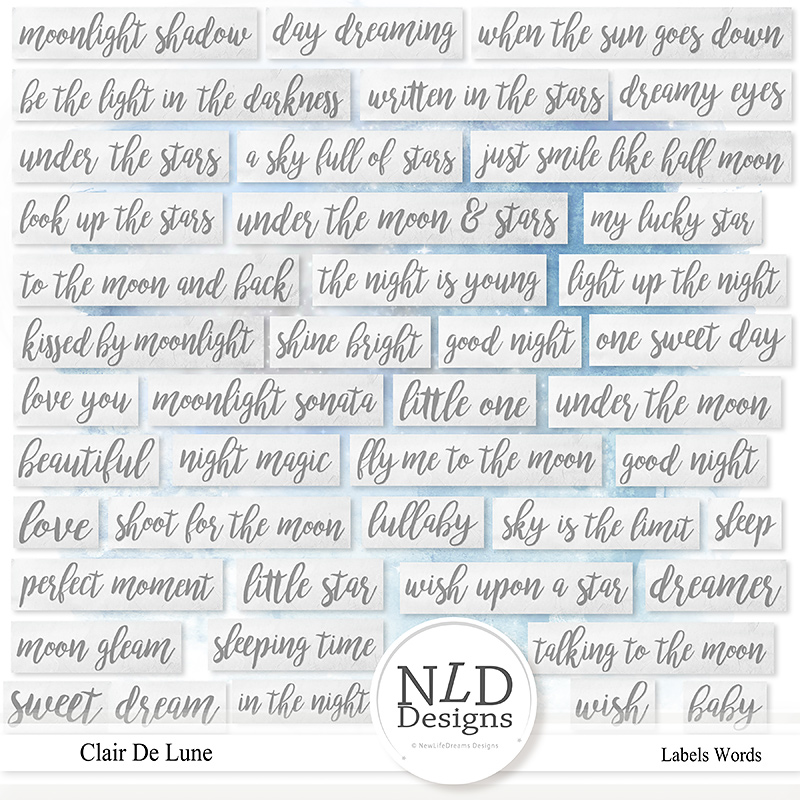 moonlight shadow day dreaming when the sun goes down
be the light in the darkness written in the stars dreamy eyes
under the stars a sky full of stars just smile like half moon
look up the stars under the moon & stars my lucky star
to the moon and back the night is young light up the night
kissed by moonlight shine bright good night one sweet day
love you moonlight sonata little one under the moon
beautiful night magic fly me to the moon good night
love shoot for the moon lullaby sky is the limit sleep
perfect moment little star wish upon a star dreamer
moon gleam sleeping time talking to the moon
sweet dream in the night wish baby
NLD
Designs
© NewLifeDreams Designs
Clair De Lune
Labels Words